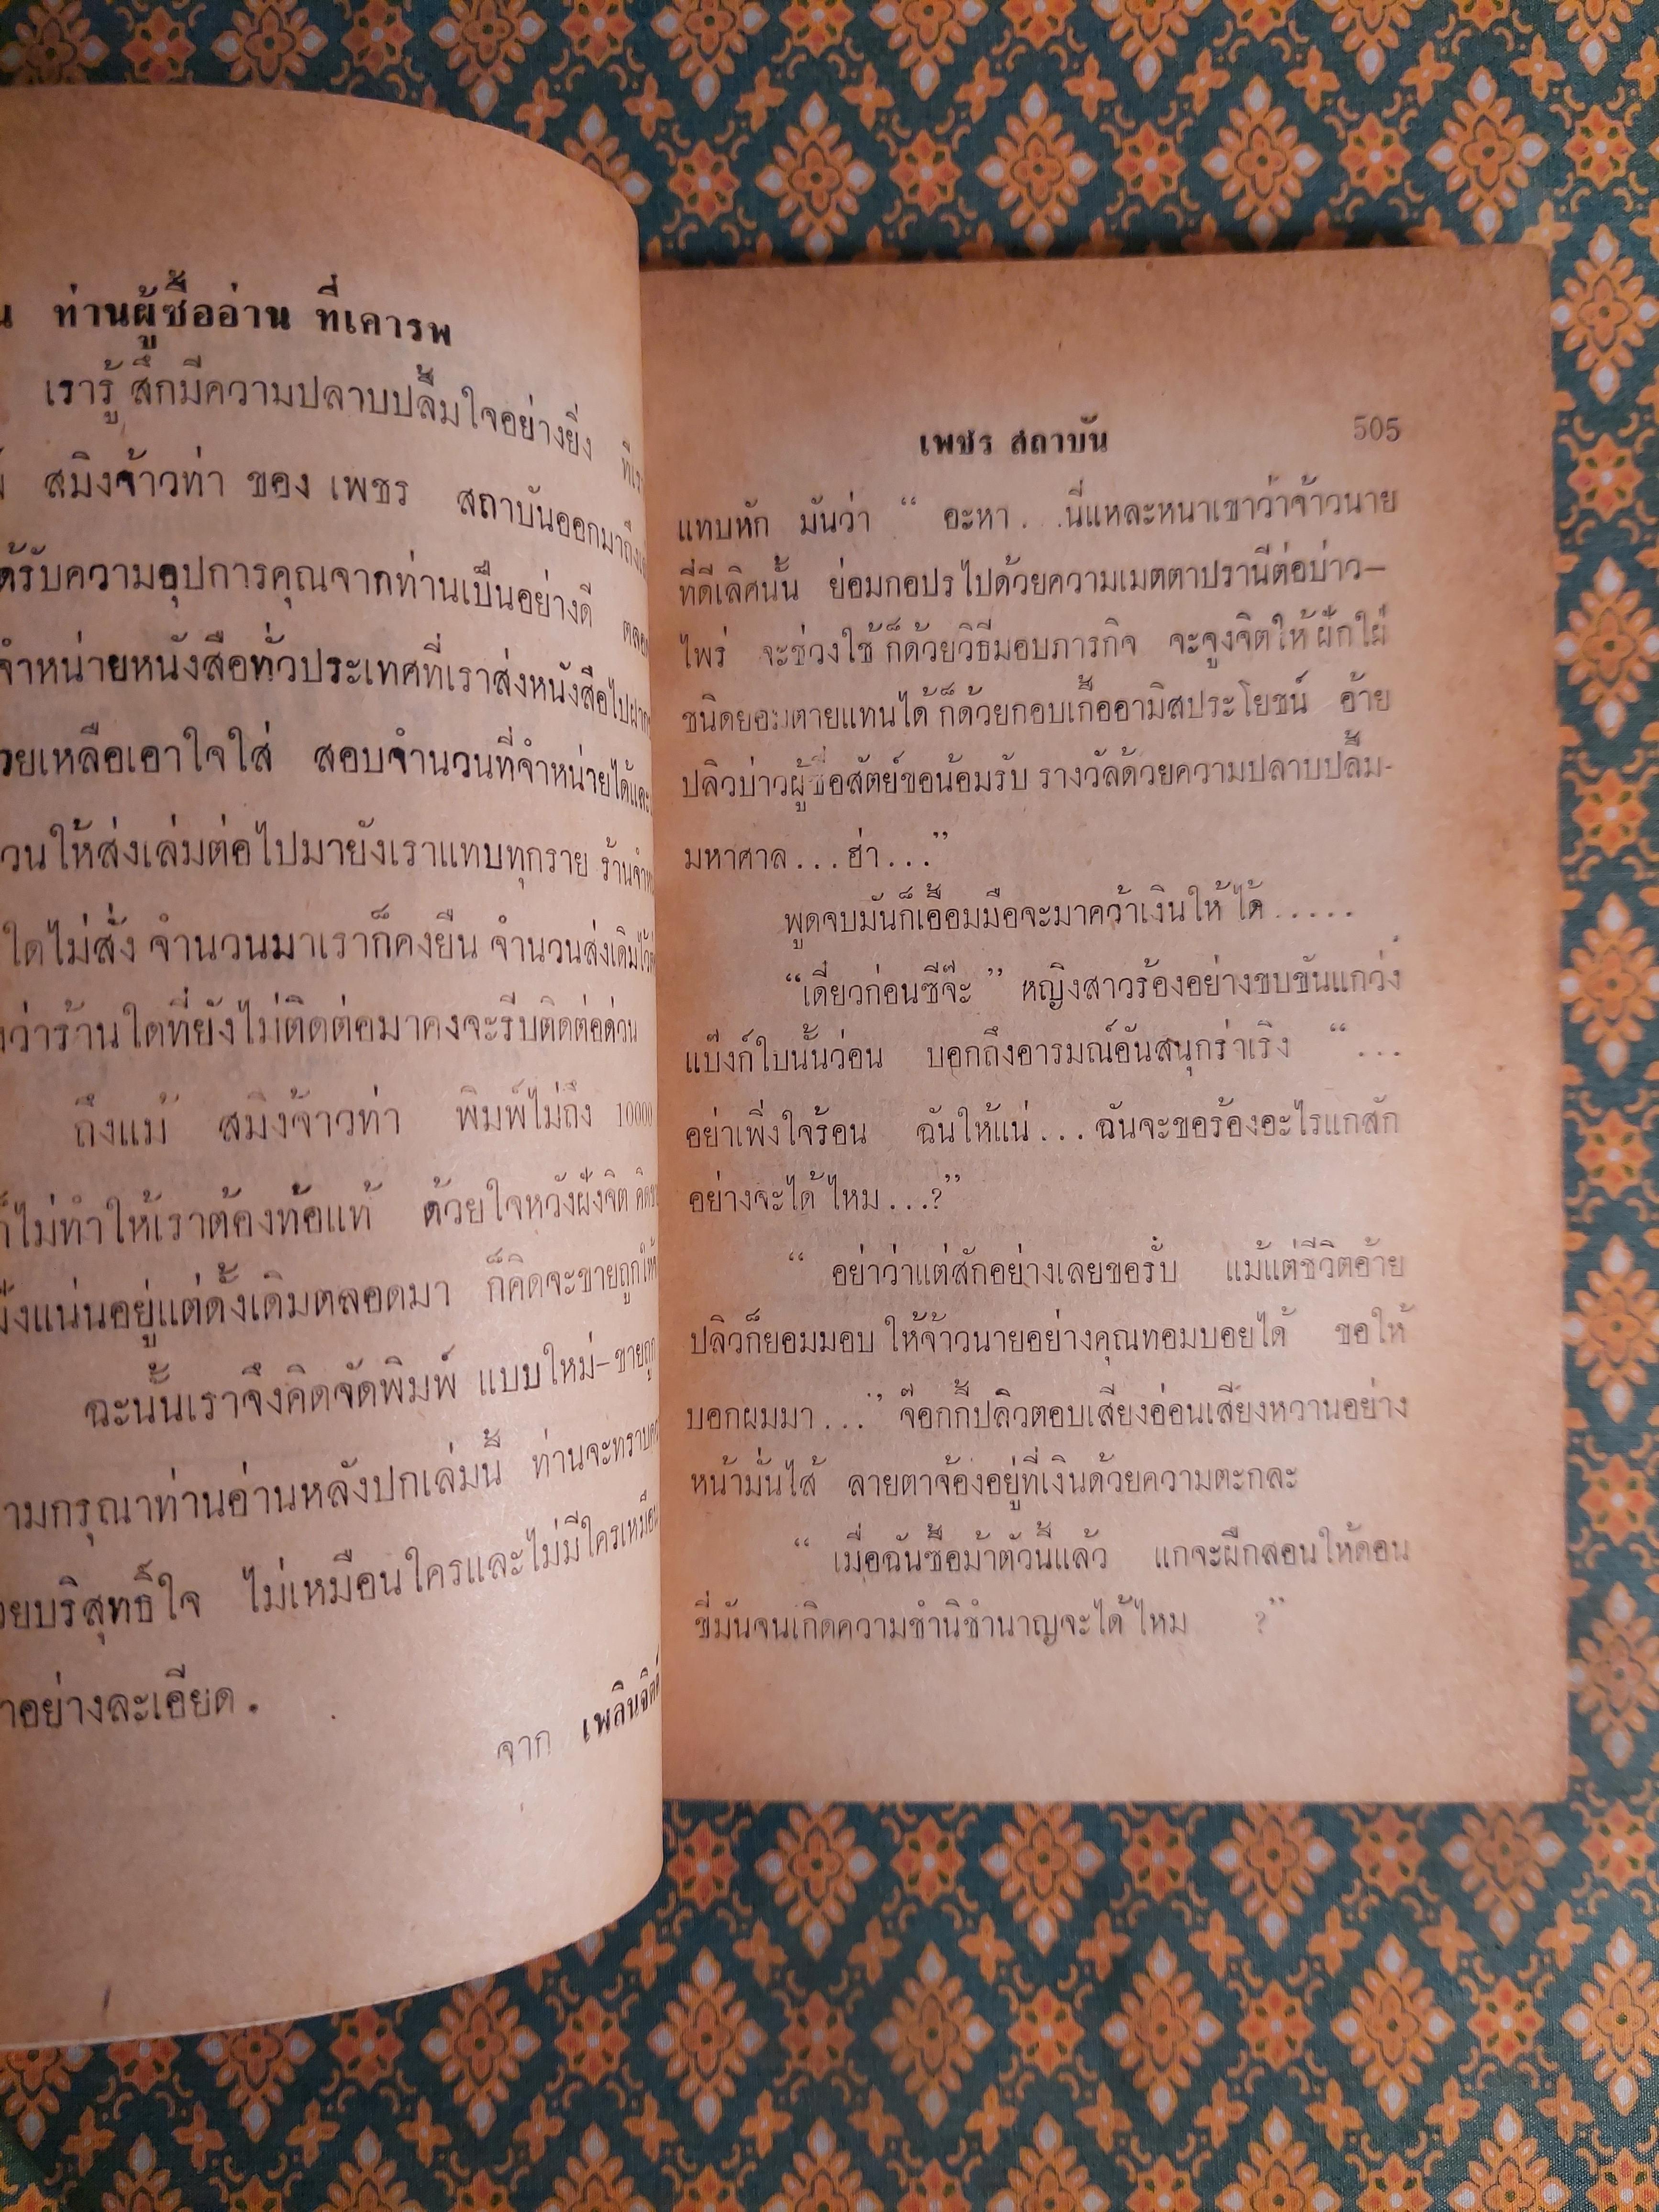 ท่านผู้ซื้ออ่าน ที่เคารพ
เรารู้สึกมีความปลาบปลื้มใจอย่างยิ่ง
สมิงจ้าวท่า ของ เพชร สถาบันออกมาถึง
ได้รับความอุปการคุณจากท่านเป็นอย่างดี
จำหน่ายหนังสือทั่วประเทศที่เราส่งหนังสือไปฝาก
เหลือเอาใจใส่ สอบจำนวนที่จำหน่ายได้และ
ให้ส่งเล่มต่อไปมายังเราแทบทุกราย
ใดไม่สั่ง จำนวนมาเราก็คงยืน จำนวนส่งเดิมไว้
ว่าร้านใดที่ยังไม่ติดต่อมาคงจะรีบติดต่อด่วน
ถึงแม้ สมิงจ้าวท่า พิมพ์ไม่ถึง 10000
ก็ไม่ทำให้เราต้องท้อแท้ ด้วยใจหวังฝังจิต
แน่นอยู่แต่ดั้งเดิมตลอดมา ก็คิดจะขายถูกให้
ฉะนั้นเราจึงคิดจัดพิมพ์ แบบใหม่-ขายถูก
กรุณาท่านอ่านหลังปกเล่มนี้ ท่านจะทราบ
บริสุทธิ์ใจ ไม่เหมือนใครและไม่มีใครเหมือน
อย่างละเอียด.
จาก เพลินจิตต์
เพชร สถาบัน 505
แทบหัก มันว่า “ อะหา...นี่แหละหนาเขาว่าจ้าวนาย
ที่ดีเลิศนั้น ย่อมกอปรไปด้วยความเมตตาปรานีต่อบ่าว-
ไพร่ จะช่วงใช้ก็ด้วยวิธีมอบภารกิจ จะจูงจิตให้ฝักใฝ่
ชนิดยอมตายแทนได้ ก็ด้วยกอบเกื้ออามิสประโยชน์ อ้าย
ปลิวบ่าวผู้ซื่อสัตย์ขอน้อมรับ รางวัลด้วยความปลาบปลื้ม-
มหาศาล...ฮ่า...”
พูดจบมันก็เอื้อมมือจะมาคว้าเงินให้ได้.....
“เดี๋ยวก่อนซีจ๊ะ ” หญิงสาวร้องอย่างขบขันแกว่ง
แบ๊งก์ใบนั้นว่อน บอกถึงอารมณ์อันสนุกร่าเริง “...
อย่าเพิ่งใจร้อน ฉันให้แน่...ฉันจะขอร้องอะไรแกสัก
อย่างจะได้ไหม...?”
“ อย่าว่าแต่สักอย่างเลยขอรับ แม้แต่ชีวิตอ้าย
ปลิวก็ยอมมอบ ให้จ้าวนายอย่างคุณทอมบอยได้ ขอให้
บอกผมมา...” จ๊อกกี้ปลิวตอบเสียงอ่อนเสียงหวานอย่าง
หน้ามั่นไส้ ลายตาจ้องอยู่ที่เงินด้วยความตะกละ
“ เมื่อฉันซื้อม้าตัวนี้แล้ว แกจะผืกสอนให้ดอน
ขี่มันจนเกิดความชำนิชำนาญจะได้ไหม ?”